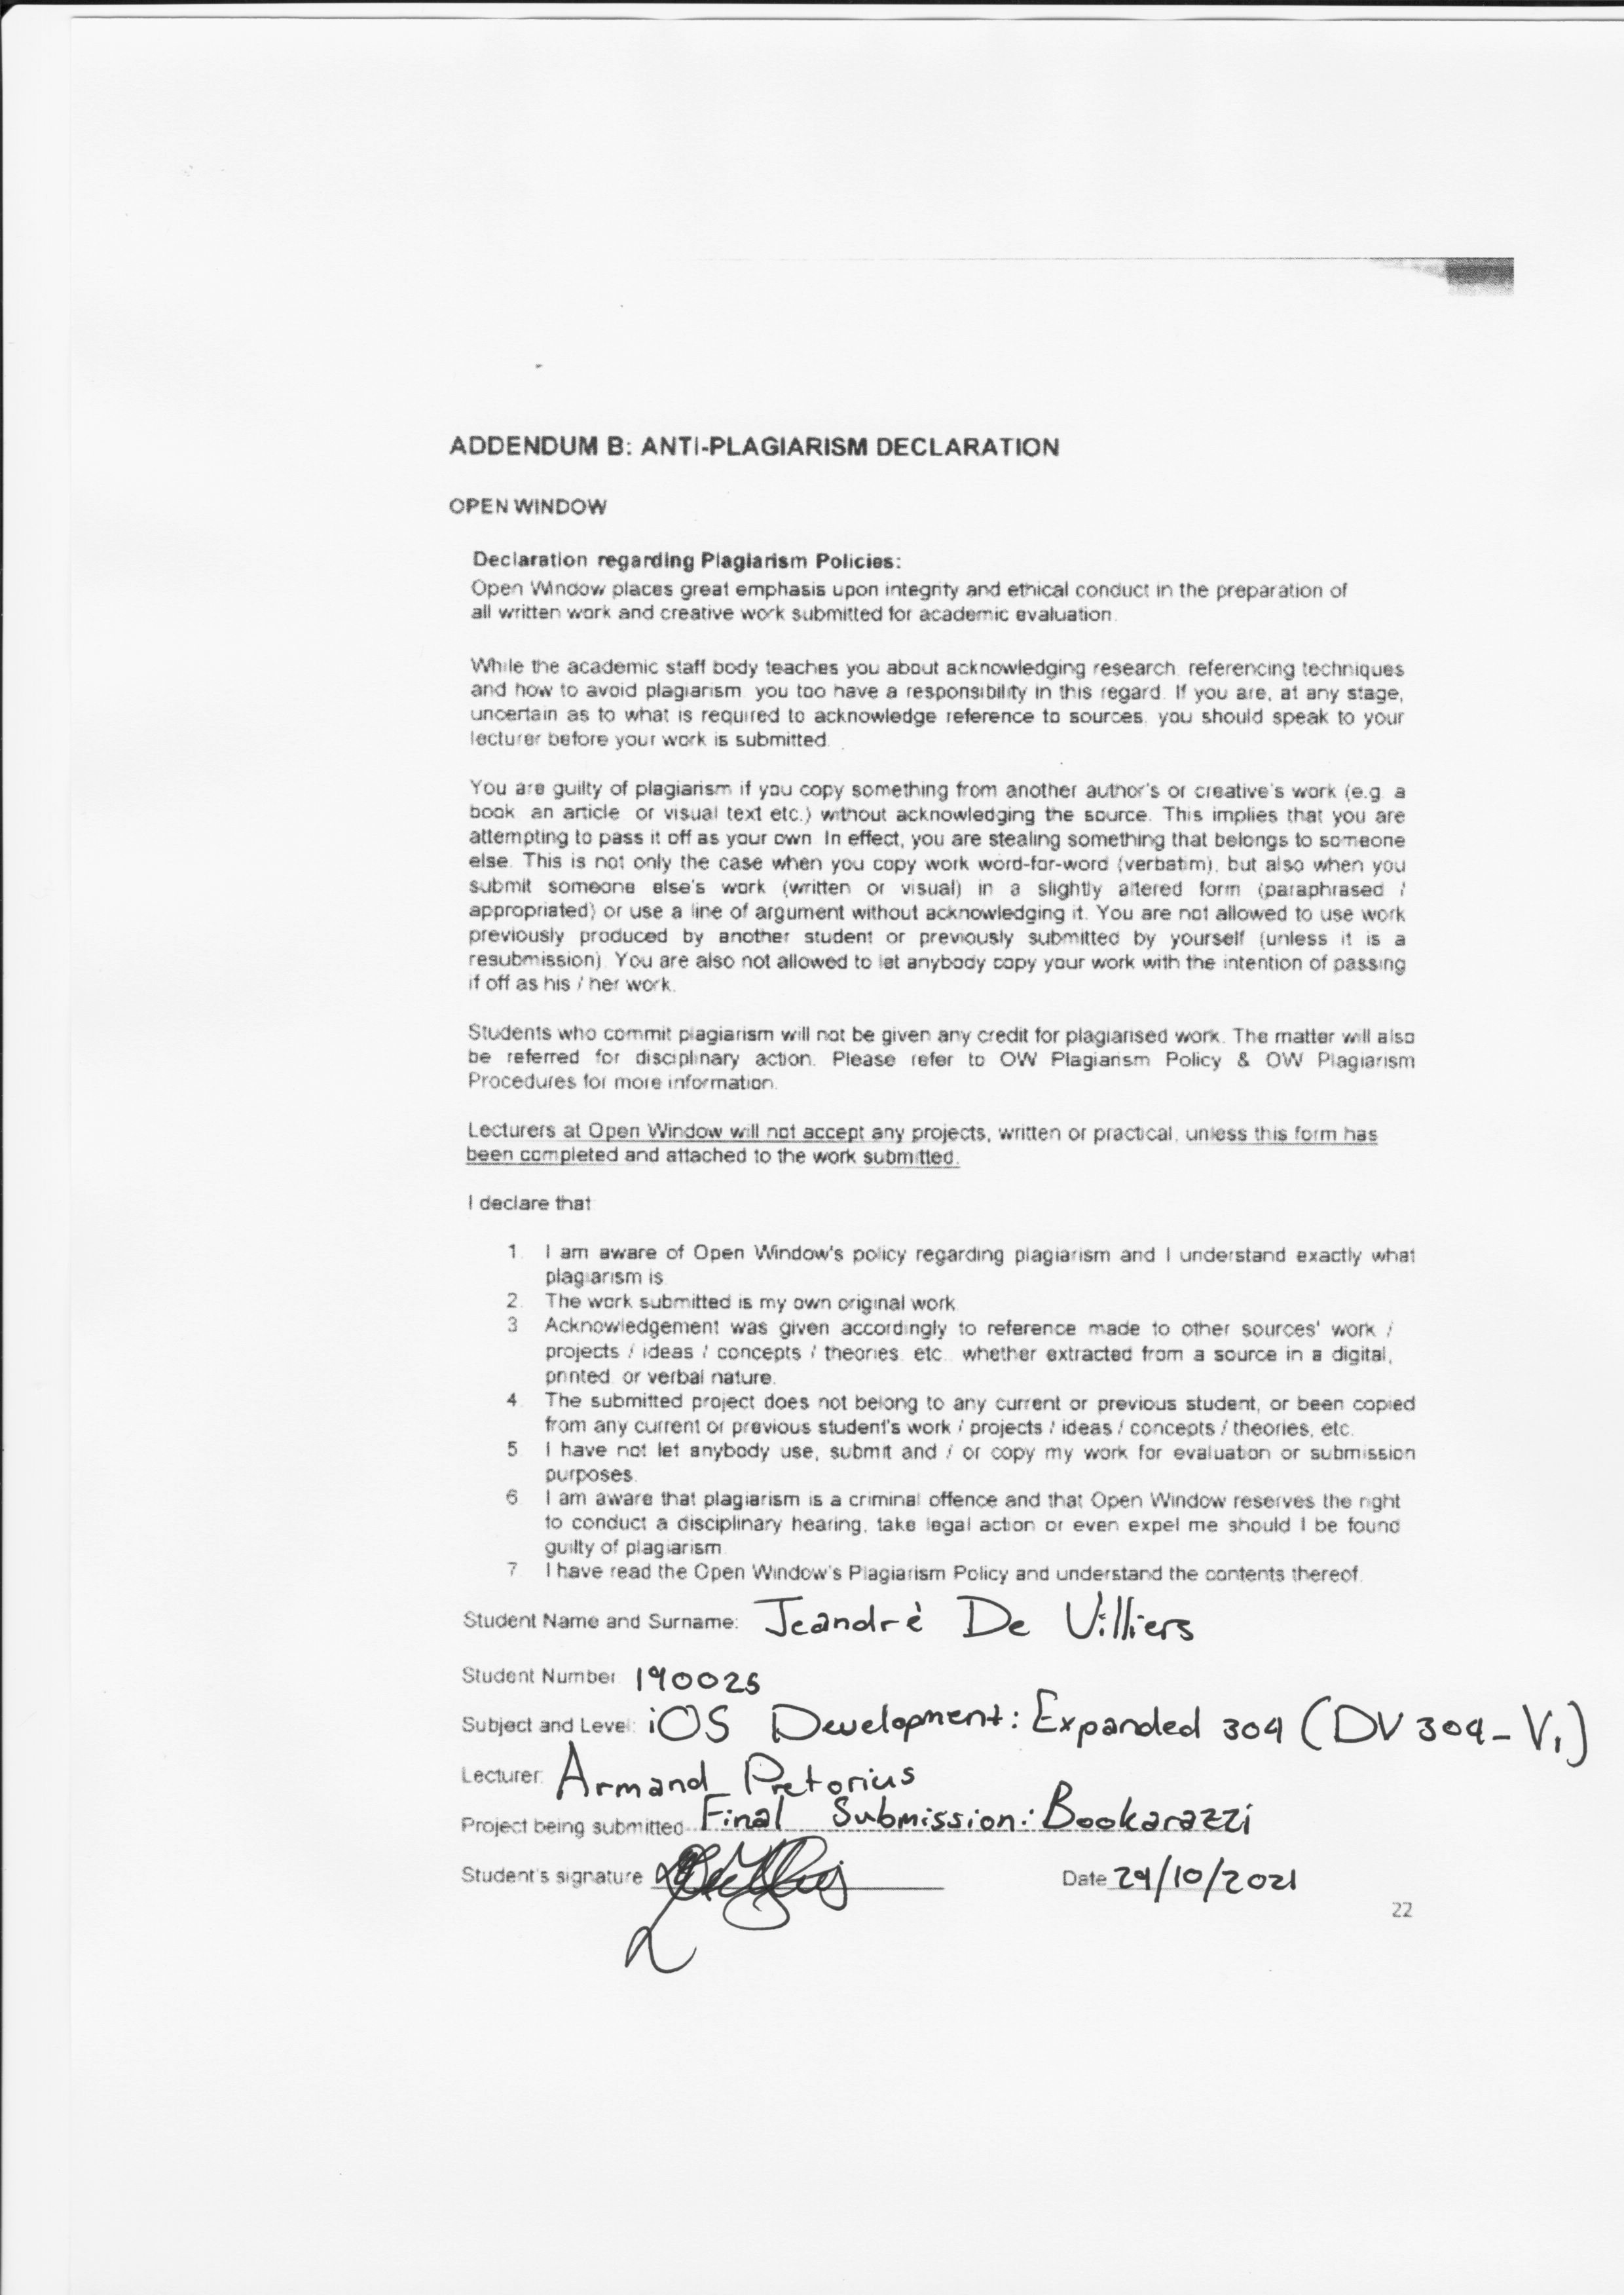 ADDENDUM B: ANTI-PLAGIARISM DECLARATION
OPEN WINDOW
Declaration regarding Plagiarism Policies:
Open Window places great emphasis upon integrity and ethical conduct in the preparation of
all written work and creative work submitted for academic evaluation.
While the academic staff body teaches you about acknowledging research, referencing techniques
and how to avoid plagiarism, you too have a responsibility in this regard. If you are, at any stage,
uncertain as to what is required to acknowledge reference to sources, you should speak to your
lecturer before your work is submitted.
You are guilty of plagiarism if you copy something from another author's or creative's work (e.g. a
book, an article, or visual text etc.) without acknowledging the source. This implies that you are
attempting to pass it off as your own. In effect, you are stealing something that belongs to someone
else. This is not only the case when you copy work word-for-word (verbatim), but also when you
submit someone else's work (written or visual) in a slightly altered form (paraphrased /
appropriated) or use a line of argument without acknowledging it. You are not allowed to use work
previously produced by another student or previously submitted by yourself (unless it is a
resubmission). You are also not allowed to let anybody copy your work with the intention of passing
if off as his / her work.
Students who commit plagiarism will not be given any credit for plagiarised work. The matter will also
be referred for disciplinary action. Please refer to OW Plagiarism Policy & OW Plagiarism
Procedures for more information.
Lecturers at Open Window will not accept any projects, written or practical, unless this form has
been completed and attached to the work submitted.
I declare that
1. I am aware of Open Window's policy regarding plagiarism and I understand exactly what
plagiarism is.
2. The work submitted is my own original work.
3 Acknowledgement was given accordingly to reference made to other sources' work /
projects / ideas / concepts / theories, etc., whether extracted from a source in a digital,
printed, or verbal nature.
4. The submitted project does not belong to any current or previous student, or been copied
from any current or previous student's work / projects / ideas / concepts / theories, etc.
5. I have not let anybody use, submit and / or copy my work for evaluation or submission
purposes.
6. I am aware that plagiarism is a criminal offence and that Open Window reserves the right
to conduct a disciplinary hearing, take legal action or even expel me should I be found
guilty of plagiarism.
7. I have read the Open Window's Plagiarism Policy and understand the contents thereof.
Student Name and Surname: Jeandrè De Villiers
Student Number 190025
Subject and Level: iOS Development: Expanded 304 (DV 304-V1)
Lecturer: Armand Pretorius
Project being submitted Final Submission: Bookarazzi
Student's signature Date 29/10/2021
22